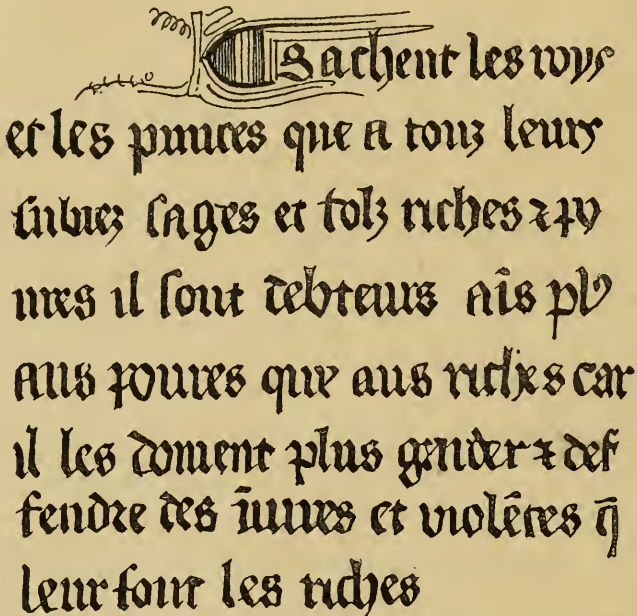 Sachent les roys
et les princes que a touz leurs
subiez ſages et folz riches ⁊ po
ures il ſont debteurs aīs plꝰ
aus poures que aus riches car
il les doiuent plus garder ⁊ def
fendre des īiures et violēces q̄
leur font les riches